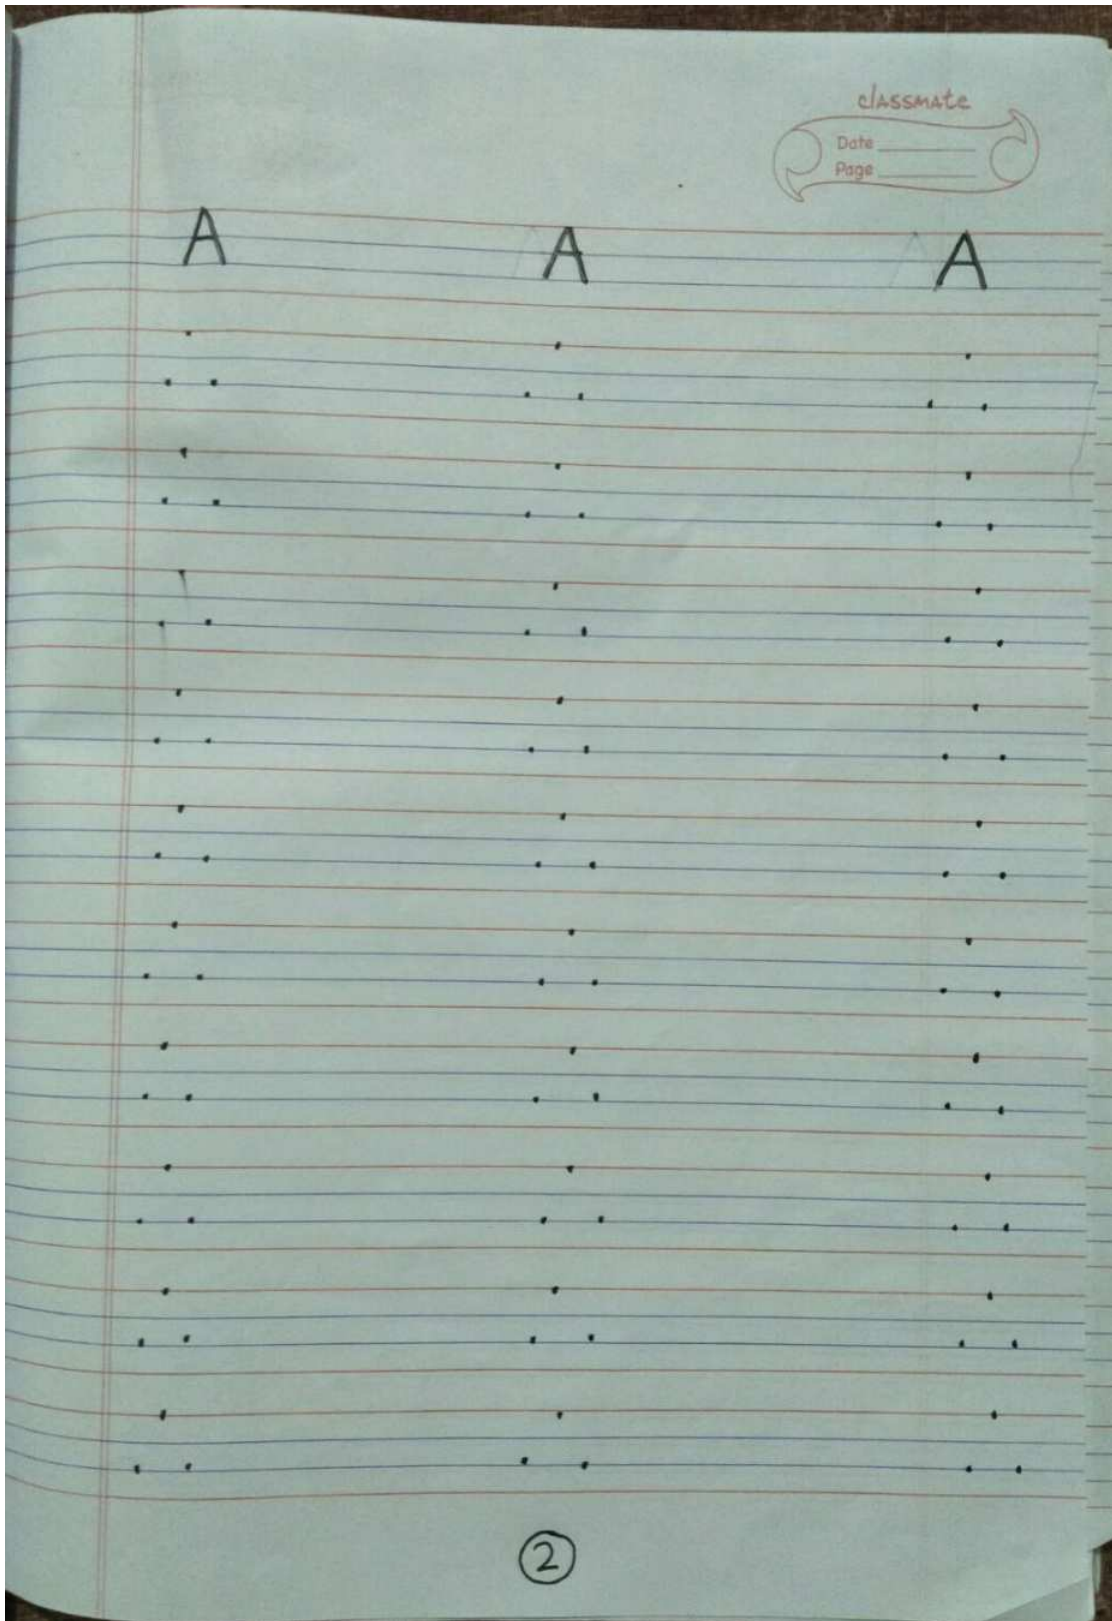 classmate
Date
Page
A A A
2